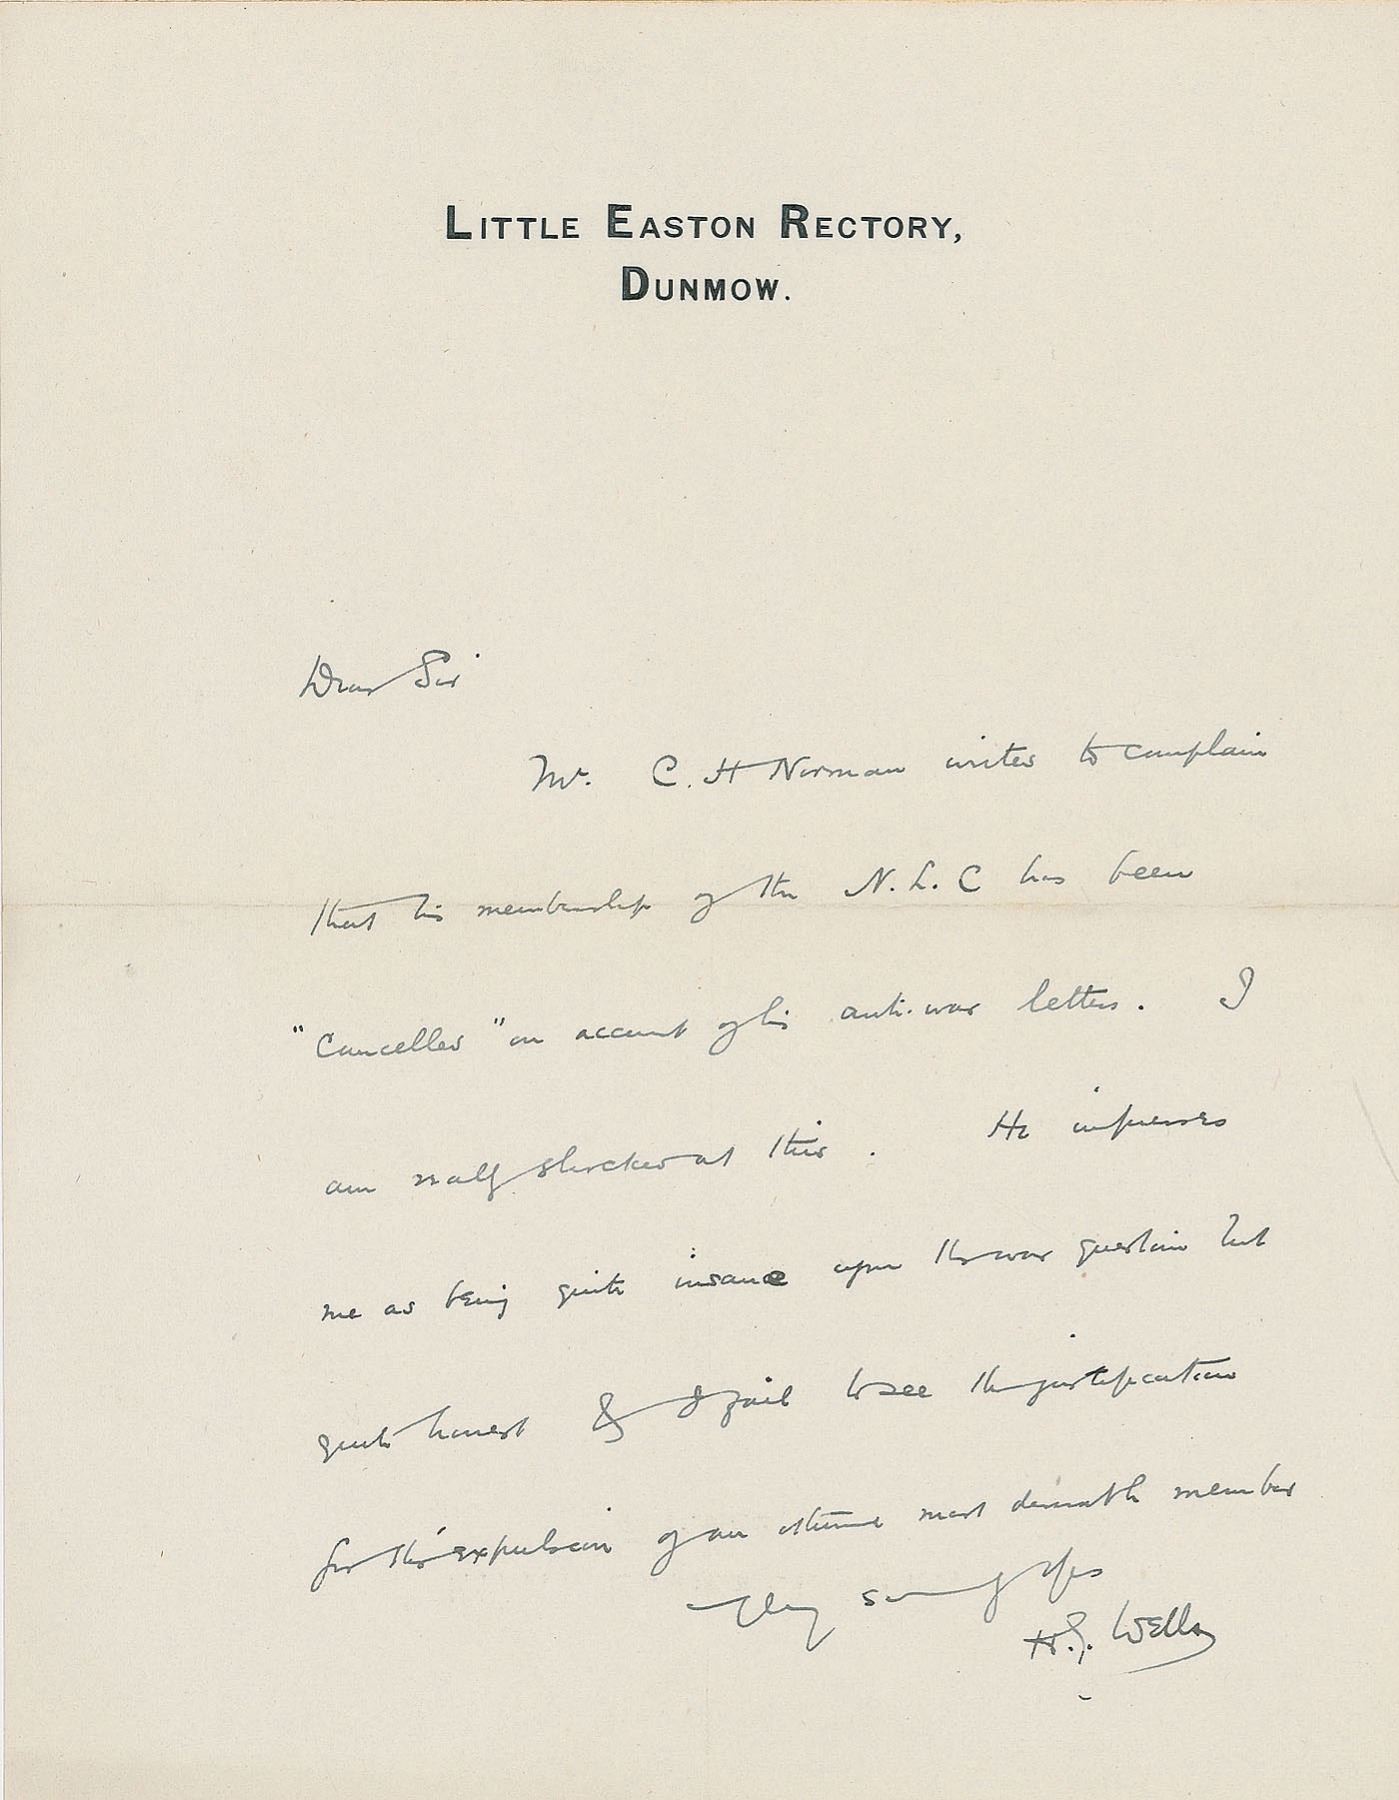 LITTLE EASTON RECTORY,
DUNMOW.
Dear Sir
Mr. C. H Norman writes to complain
that his membership of the N. L. C has been
"Cancelled" on account of his anti-war letters. I
am really shocked at this. He impresses
me as being quite insane upon the war question but
quite honest & I fail to see the justification
for the expulsion of an otherwise most desirable member
Very sincerely yours
H.G. Wells